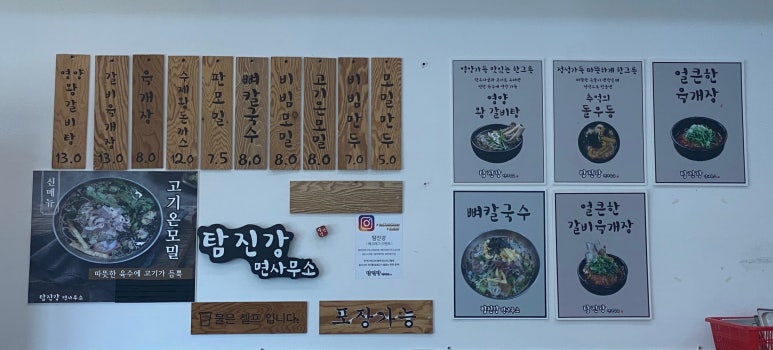 영양왕갈비탕 13.0
갈비육개장 13.0
육개장 8.0
수제왕돈까스 12.0
판모밀 7.5
뼈칼국수 8.0
비빔모밀 8.0
고기온모밀 8.0
비빔만두 7.0
모밀만두 5.0
신메뉴
고기온모밀
따뜻한 육수에 고기가 듬뿍
탐진강 면사무소
탐진강
면사무소
탐진강
물은 셀프 입니다.
포장가능
영양가득 맛있는 한그릇
영양
왕 갈비탕
탐진강
정성가득 따뜻하게 한그릇
추억의
돌우동
탐진강
얼큰한
육개장
탐진강
뼈칼국수
탐진강 면사무소
얼큰한
갈비육개장
탐진강